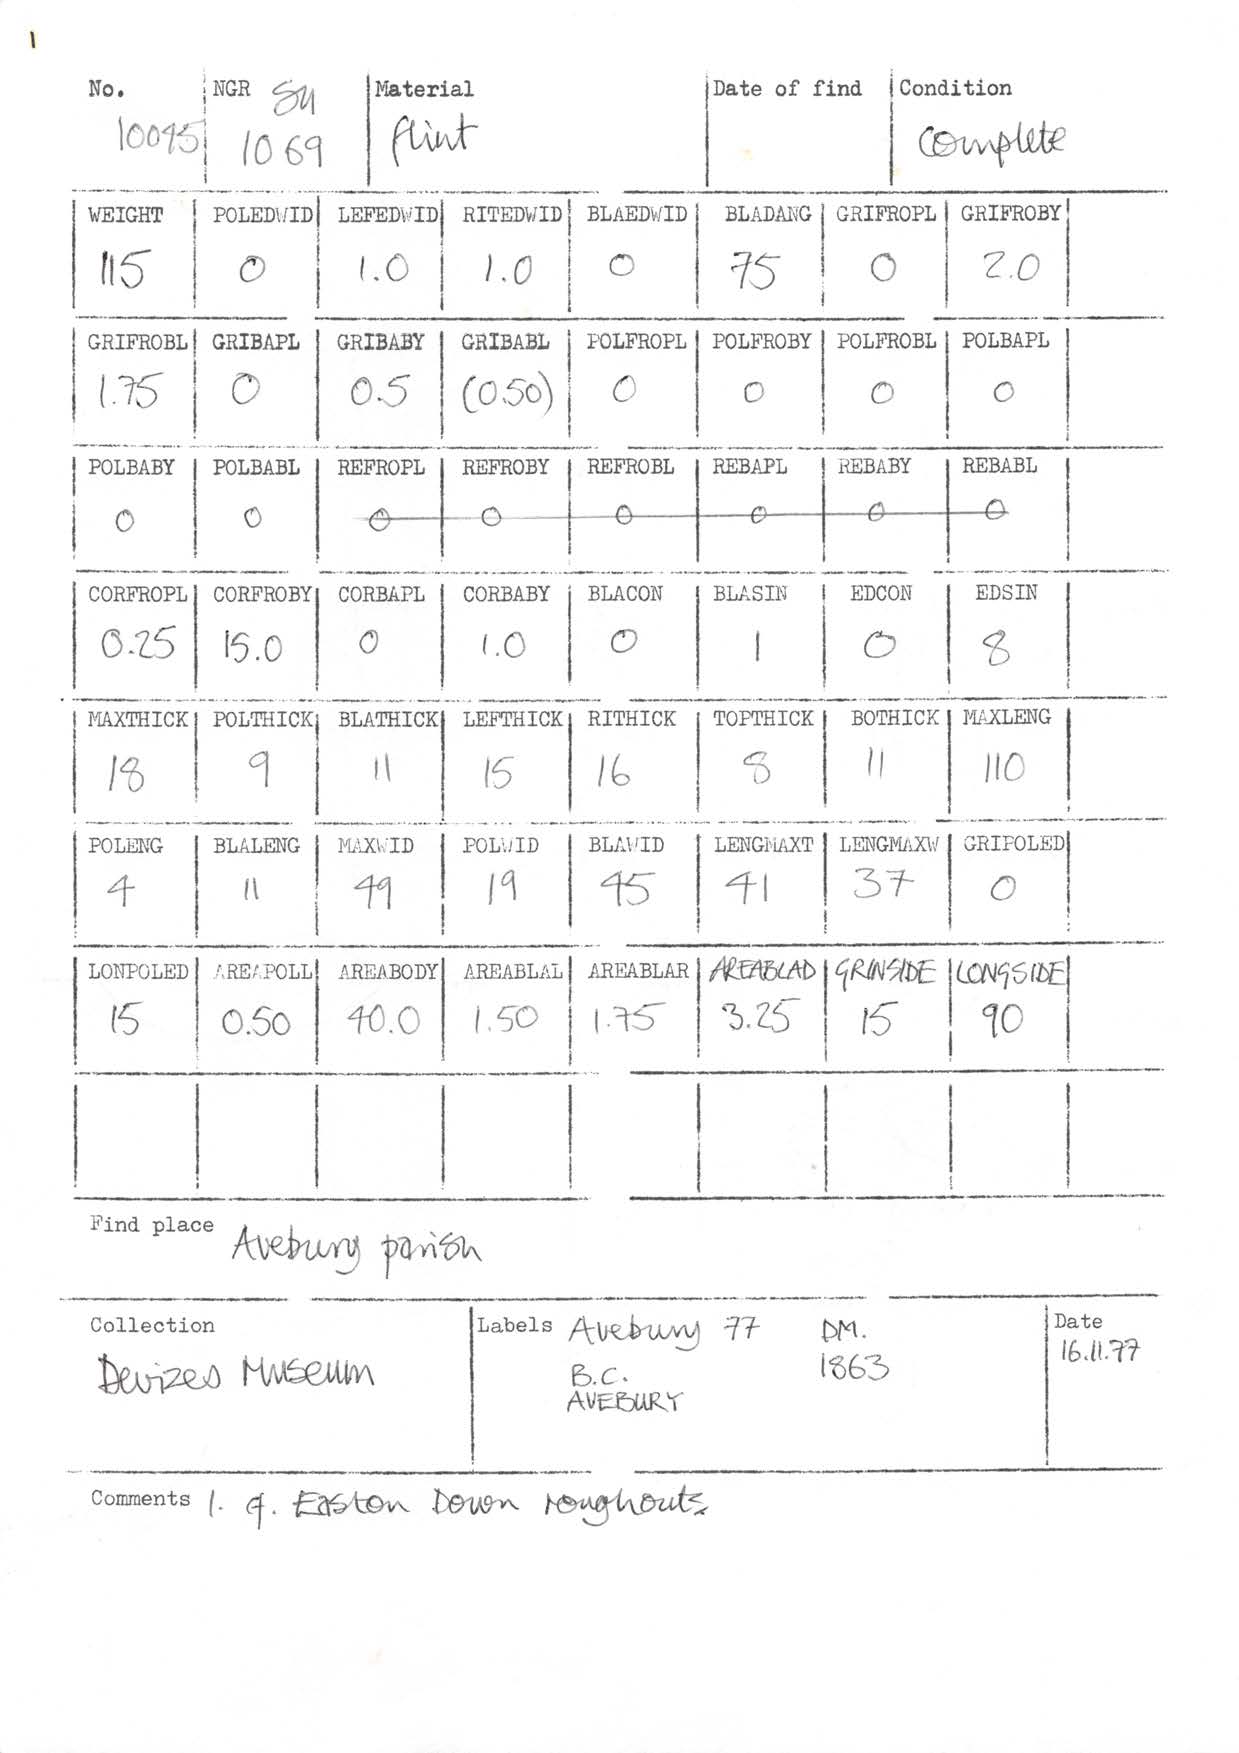 1
No. NGR SU Material Date of find Condition
10045 1069 flint complete
WEIGHT POLEDWID LEFEDWID RITEDWID BLAEDWID BLADANG GRIFROPL GRIFROBY
115 0 1.0 1.0 0 75 0 2.0
GRIFROBL GRIBAPL GRIBABY GRIBABL POLFROPL POLFROBY POLFROBL POLBAPL
1.75 0 0.5 (0.50) 0 0 0 0
POLBABY POLBABL REFROPL REFROBY REFROBL REBAPL REBABY REBABL
0 0 0 0 0 0 0 0
CORFROPL CORFROBY CORBAPL CORBABY BLACON BLASIN EDCON EDSIN
0.25 15.0 0 1.0 0 1 0 8
MAXTHICK POLTHICK BLATHICK LEFTHICK RITHICK TOPTHICK BOTHICK MAXLENG
18 9 11 15 16 8 11 110
POLENG BLALENG MAXWID POLWID BLAWID LENGMAXT LENGMAXW GRIPOLED
4 11 49 19 45 41 37 0
LONPOLED AREAPOLL AREABODY AREABLAL AREABLAR AREABLAD GRINSIDE LONGSIDE
15 0.50 40.0 1.50 1.75 3.25 15 90
Find place Avebury parish
Collection Labels Avebury 77 DM. Date
Devizes Museum B.C. 1863 16.11.77
AVEBURY
Comments 1. cf. Easton Down roughouts.